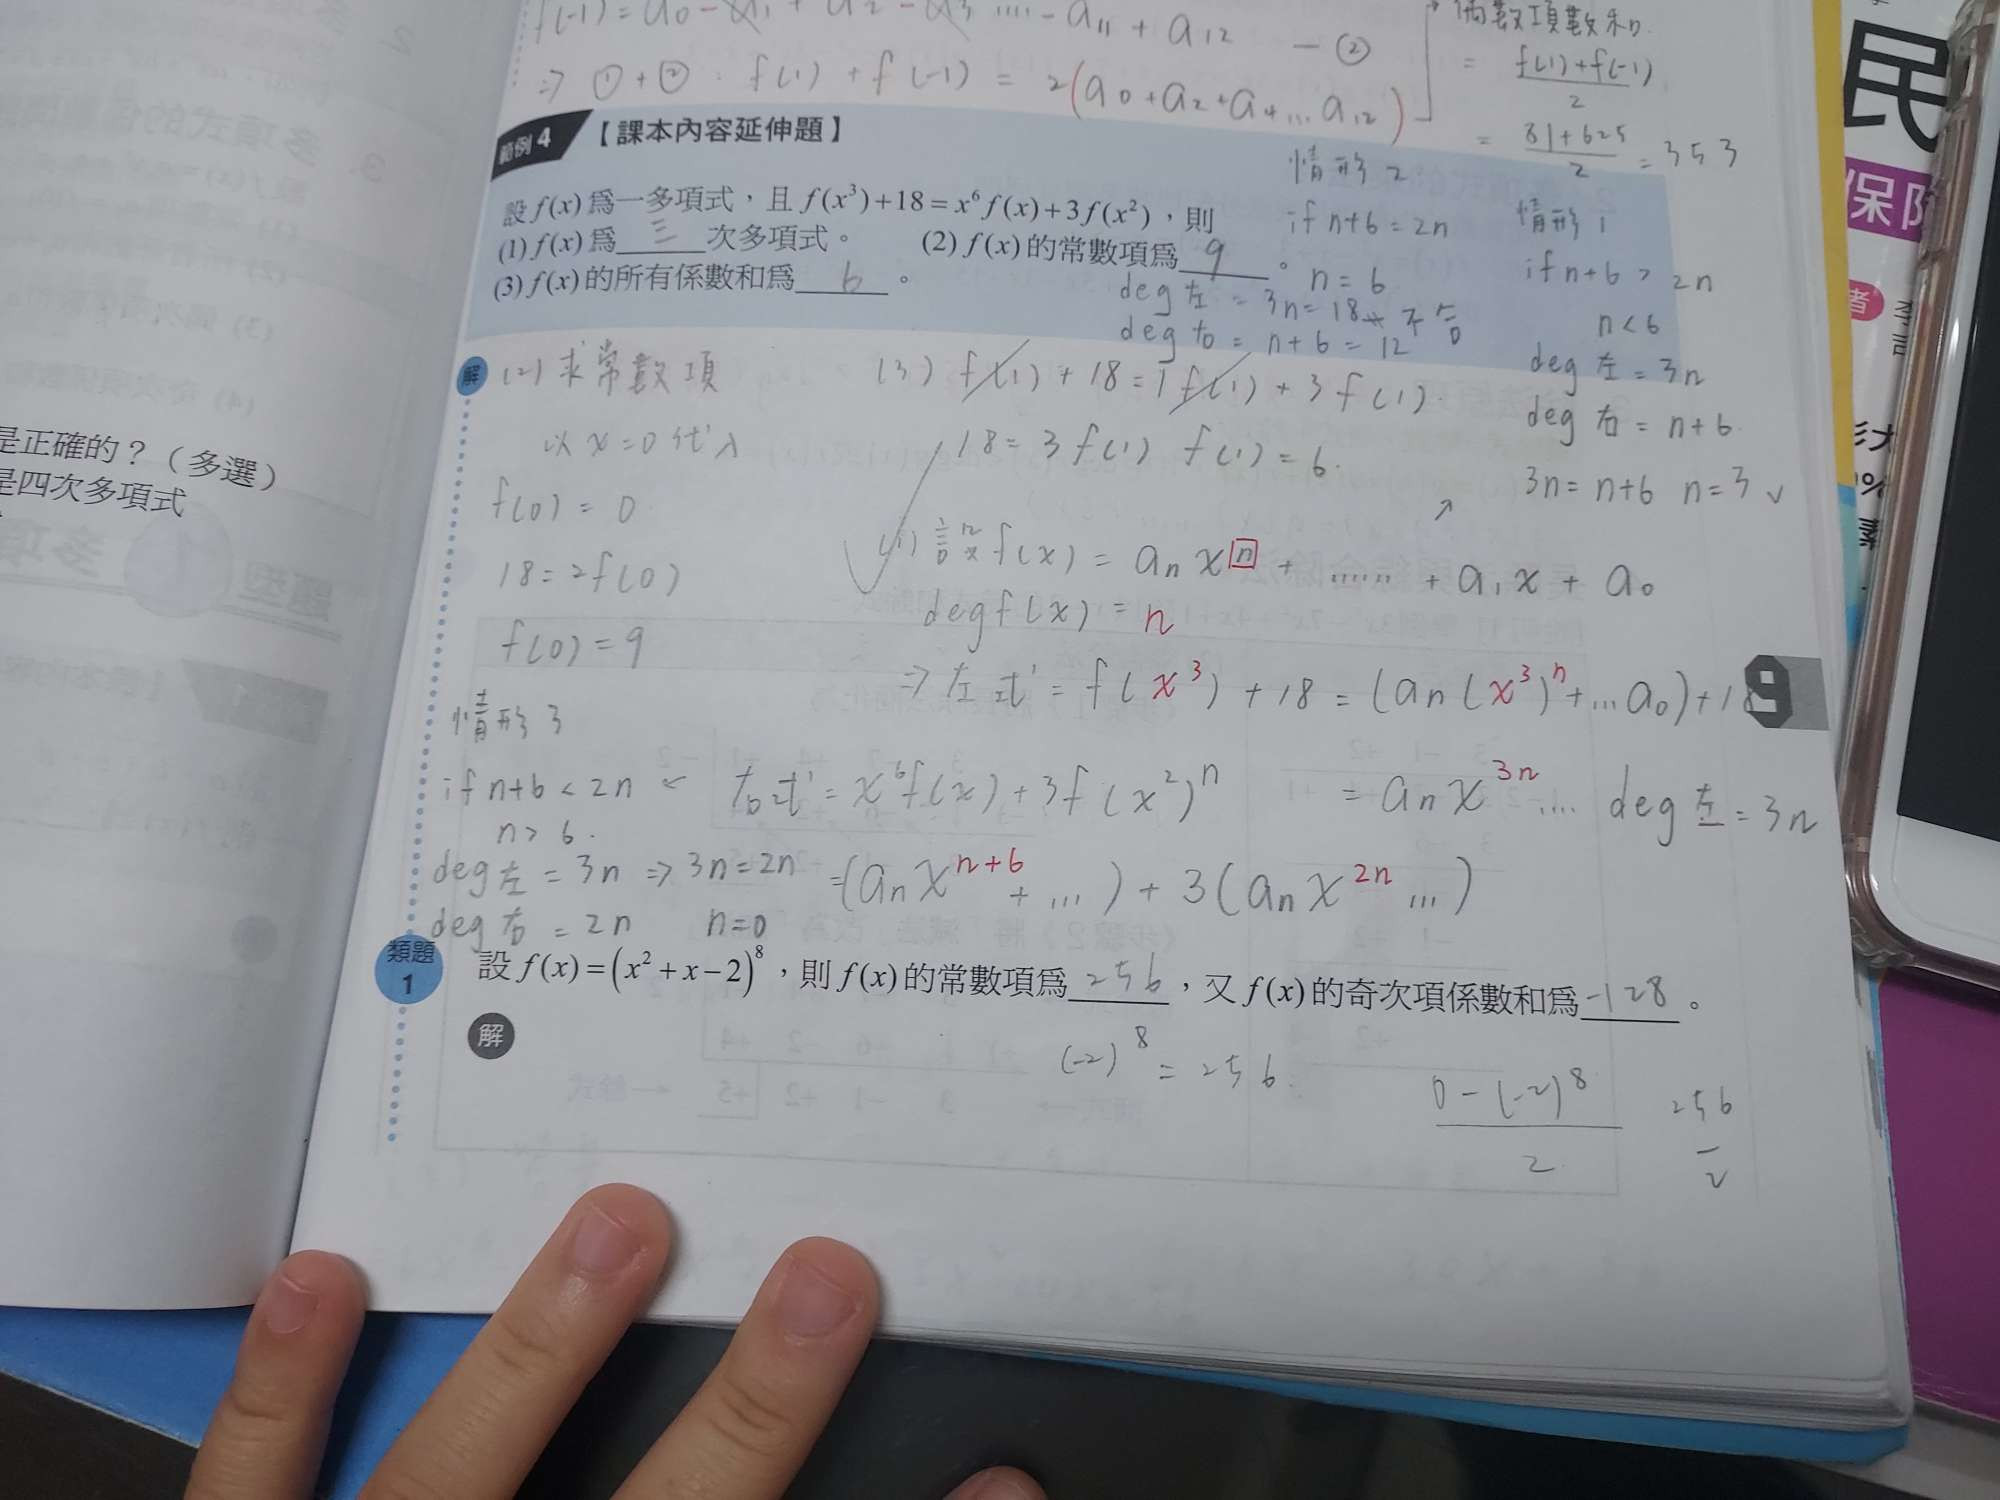 f(-1) = a0 - a1 + a2 - a3 .... - a11 + a12 — ②
偶數項數和
⇒ ① + ② : f(1) + f(-1) = 2(a0+a2+a4+...a12)
= f(1)+f(-1) / 2
= 81+625 / 2 = 353
範例4 【課本內容延伸題】
設 f(x) 為一多項式，且 f(x³)+18=x⁶f(x)+3f(x²)，則
(1) f(x) 為 三 次多項式。 (2) f(x) 的常數項為 9 。
(3) f(x) 的所有係數和為 6 。
情形 2
if n+6 = 2n
n = 6
deg 左 = 3n = 18 不合
deg 右 = n+6 = 12
情形 1
if n+6 > 2n
n < 6
deg 左 = 3n
deg 右 = n+6
3n = n+6 n = 3 ✓
解 (2) 求常數項
以 x=0 代入
f(0) = 0
18 = 2f(0)
f(0) = 9
(3) f(1) + 18 = 1f(1) + 3f(1).
18 = 3f(1) f(1) = 6.
(1) 設 f(x) = an x^n + ...... + a1x + a0
deg f(x) = n
⇒ 左式 = f(x³) + 18 = (an(x³)^n + ...a0) + 18
= an x^3n .... deg 左 = 3n
右式 = x⁶f(x) + 3f(x²)^n
= (an x^n+6 + ...) + 3(an x^2n ...)
情形 3
if n+6 < 2n
n > 6.
deg 左 = 3n ⇒ 3n = 2n
deg 右 = 2n n=0
9
類題 1 設 f(x)=(x²+x-2)⁸，則 f(x) 的常數項為 256 ，又 f(x) 的奇次項係數和為 -128 。
解
(-2)⁸ = 256
0-(-2)⁸ / 2
256 / 2
是正確的？（多選）
是四次多項式
題型 1 多項
民
保險
者